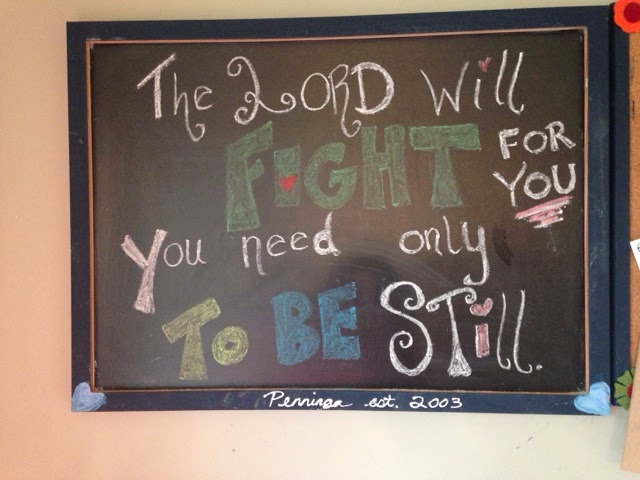 The LORD will
FIGHT FOR YOU
You need only
To BE STill.
Penninga est. 2003